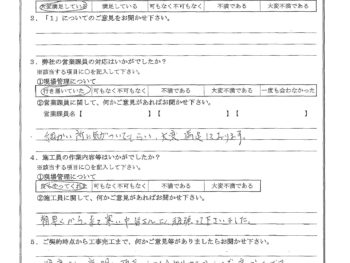 大変満足している 満足している 可もなく不可もなく 不満である 大変不満である
2．「1」についてのご意見をお聞かせ下さい。
3．弊社の営業課員の対応はいかがでしたか？
※該当する項目に○を記入して下さい。
①現場管理について
行き届いていた 可もなく不可もなく 不満である 大変不満である 一度も会わなかった
②営業課員に関して、何かご意見があればお聞かせ下さい。
営業課員名【 】【 】【 】
細かい所に気がついてもらい、大変満足しております。
4．施工員の作業内容等はいかがでしたか？
※該当する項目に○を記入して下さい。
①現場管理について
良くやってくれた 可もなく不可もなく 不満である 大変不満である
②施工員に関して、何かご意見があればお聞かせ下さい。
朝早くから、寒い中皆さんに頑張って下さいました。
5．ご契約時点から工事完工まで、何かご意見等がありましたらお聞かせ下さい。